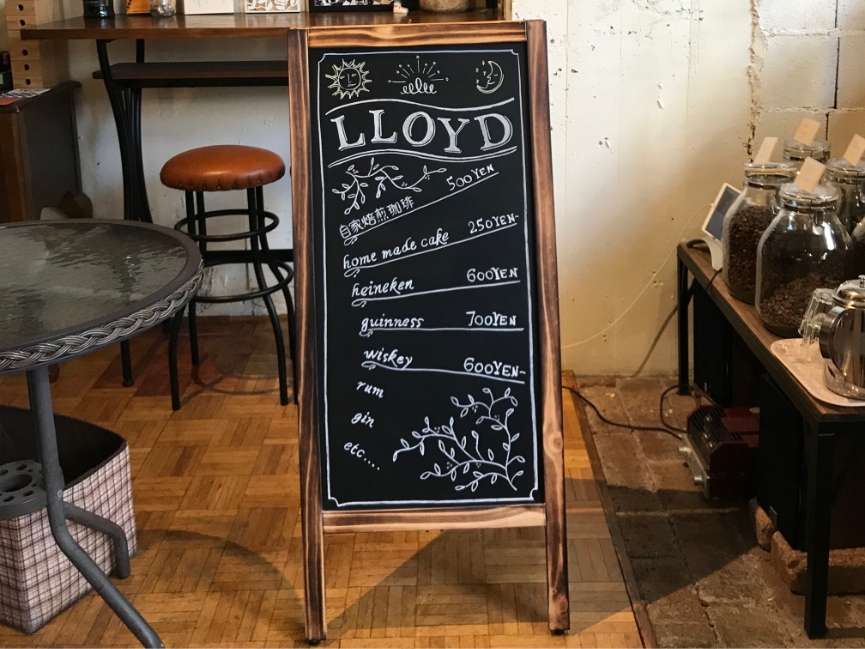 LLOYD
自家焙煎珈琲 500YEN
home made cake 250YEN~
heineken 600YEN
guinness 700YEN
wiskey 600YEN~
rum
gin
etc....